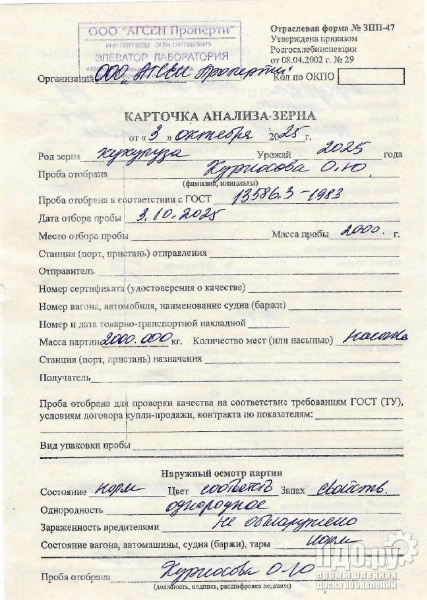 ООО "АГСЕН Проперти"
ЭЛЕВАТОР ЛАБОРАТОРИЯ
Отраслевая форма № ЗПП-47
Утверждена приказом
Росгосхлебинспекции
от 08.04.2002 г. № 29
Организация ООО "АГСЕН Проперти" Код по ОКПО
КАРТОЧКА АНАЛИЗА ЗЕРНА
от « 3 » октября 2025 г.
Род зерна кукуруза Урожай 2025 года
Проба отобрана О.Ю
(фамилия, инициалы)
Проба отобрана в соответствии с ГОСТ 13586.3-1983
Дата отбора пробы 3.10.2025
Место отбора пробы Масса пробы 2000. г.
Станция (порт, пристань) отправления
Отправитель
Номер сертификата (удостоверения о качестве)
Номер вагона, автомобиля, наименование судна (баржи)
Номер и дата товарно-транспортной накладной
Масса партии 2000.000 кг. Количество мест (или насыпью)
Станция (порт, пристань) назначения
Получатель
Проба отобрана для проверки качества на соответствие требованиям ГОСТ (ТУ),
условиям договора купли-продажи, контракта по показателям:
Вид упаковки пробы
Наружный осмотр партии
Состояние норм Цвет Запах свойств.
Однородность однородное
Зараженность вредителями Не обнаружено
Состояние вагона, автомашины, судна (баржи), тары норм
Проба отобрана О.Ю
(должность, подпись, расшифровка подписи)
ПДО.ру
промышленная
доска объявлений